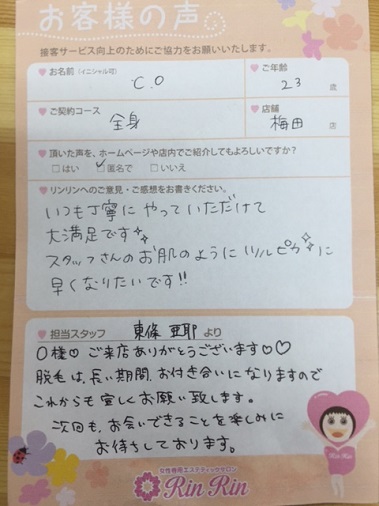 お客様の声
接客サービス向上のためにご協力をお願いいたします。
お名前（イニシャル可）
C.O
ご年齢
23 歳
ご契約コース
全身
店舗
梅田 店
頂いた声を、ホームページや店内でご紹介してもよろしいですか?
□はい ☑匿名で □いいえ
リンリンへのご意見・ご感想をお書きください。
いつも丁寧にやっていただけて
大満足です
スタッフさんのお肌のようにツルピカに
早くなりたいです!!
担当スタッフ 東條 亜耶 より
O様♡ ご来店ありがとうございます♡♡
脱毛は、長い期間、お付き合いになりますので
これからも宜しくお願い致します。
次回も、お会いできることを楽しみに
お待ちしております。
女性専用エステティックサロン
Rin Rin
Rin Rin